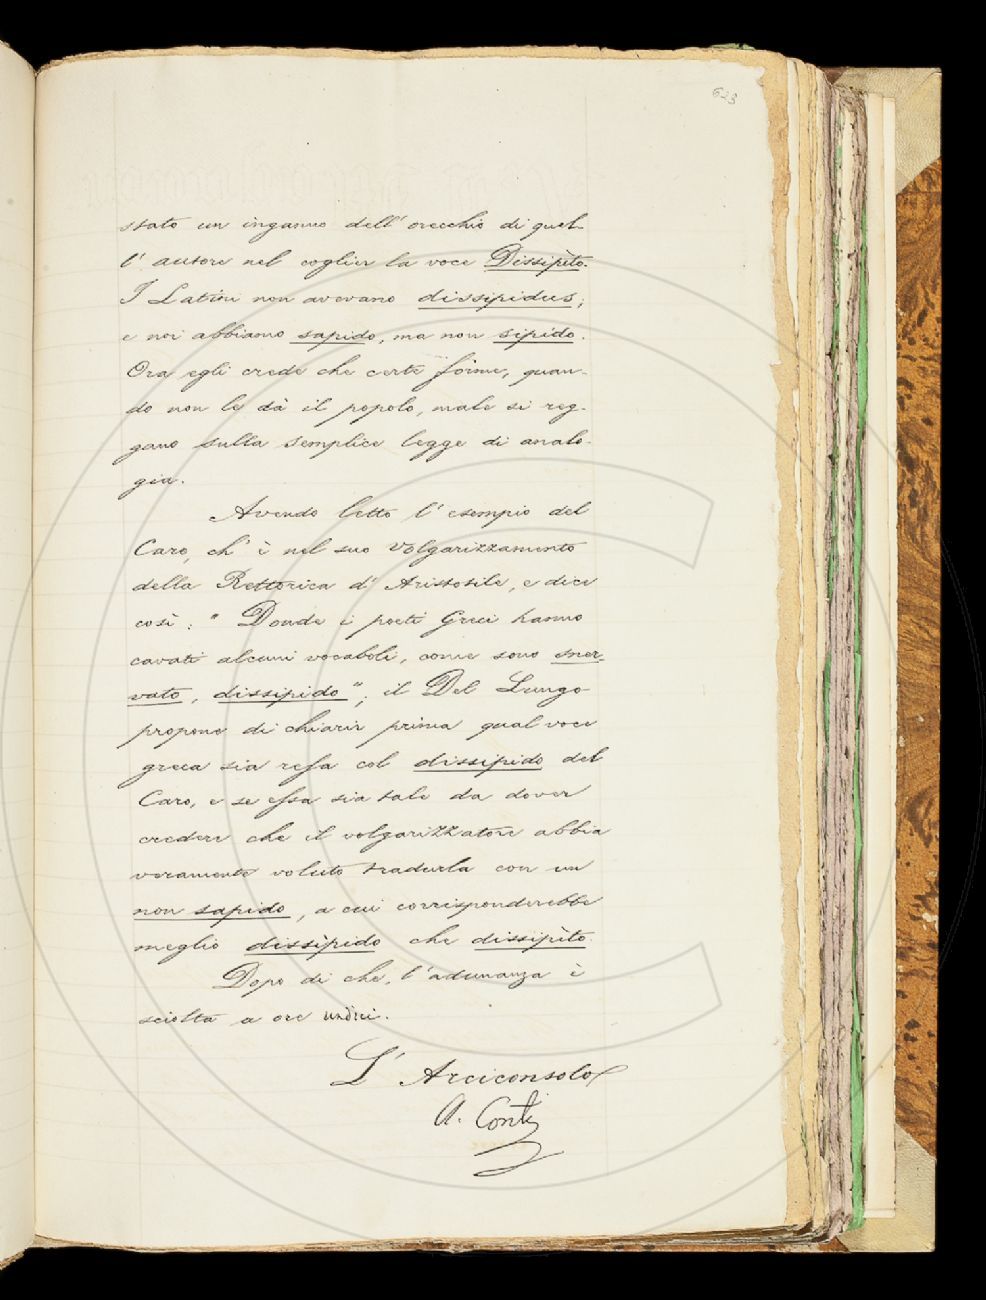 623
stato un inganno dell'orecchio di quel-
l'autore nel coglier la voce Dissipìto.
I Latini non avevano dissipidus;
e noi abbiamo sapido, ma non sipido.
Ora egli crede che certe forme, quan-
do non le dà il popolo, male si reg-
gano sulla semplice legge di analo-
gia.
Avendo letto l'esempio del
Caro, ch'è nel suo Volgarizzamento
della Rettorica d'Aristotile, e dice
così: "Donde i poeti Greci hanno
cavati alcuni vocaboli, come sono sner-
vato, dissipido"; il Del Lungo
propone di chiarir prima qual voce
greca sia resa col dissipido del
Caro, e se essa sia tale da dover
credere che il volgarizzatore abbia
veramente voluto tradurla con un
non sapido, a cui corrisponderebbe
meglio dissìpido che dissipìto.
Dopo di che, l'adunanza è
sciolta a ore undici.
L'Arciconsolo
A. Conti